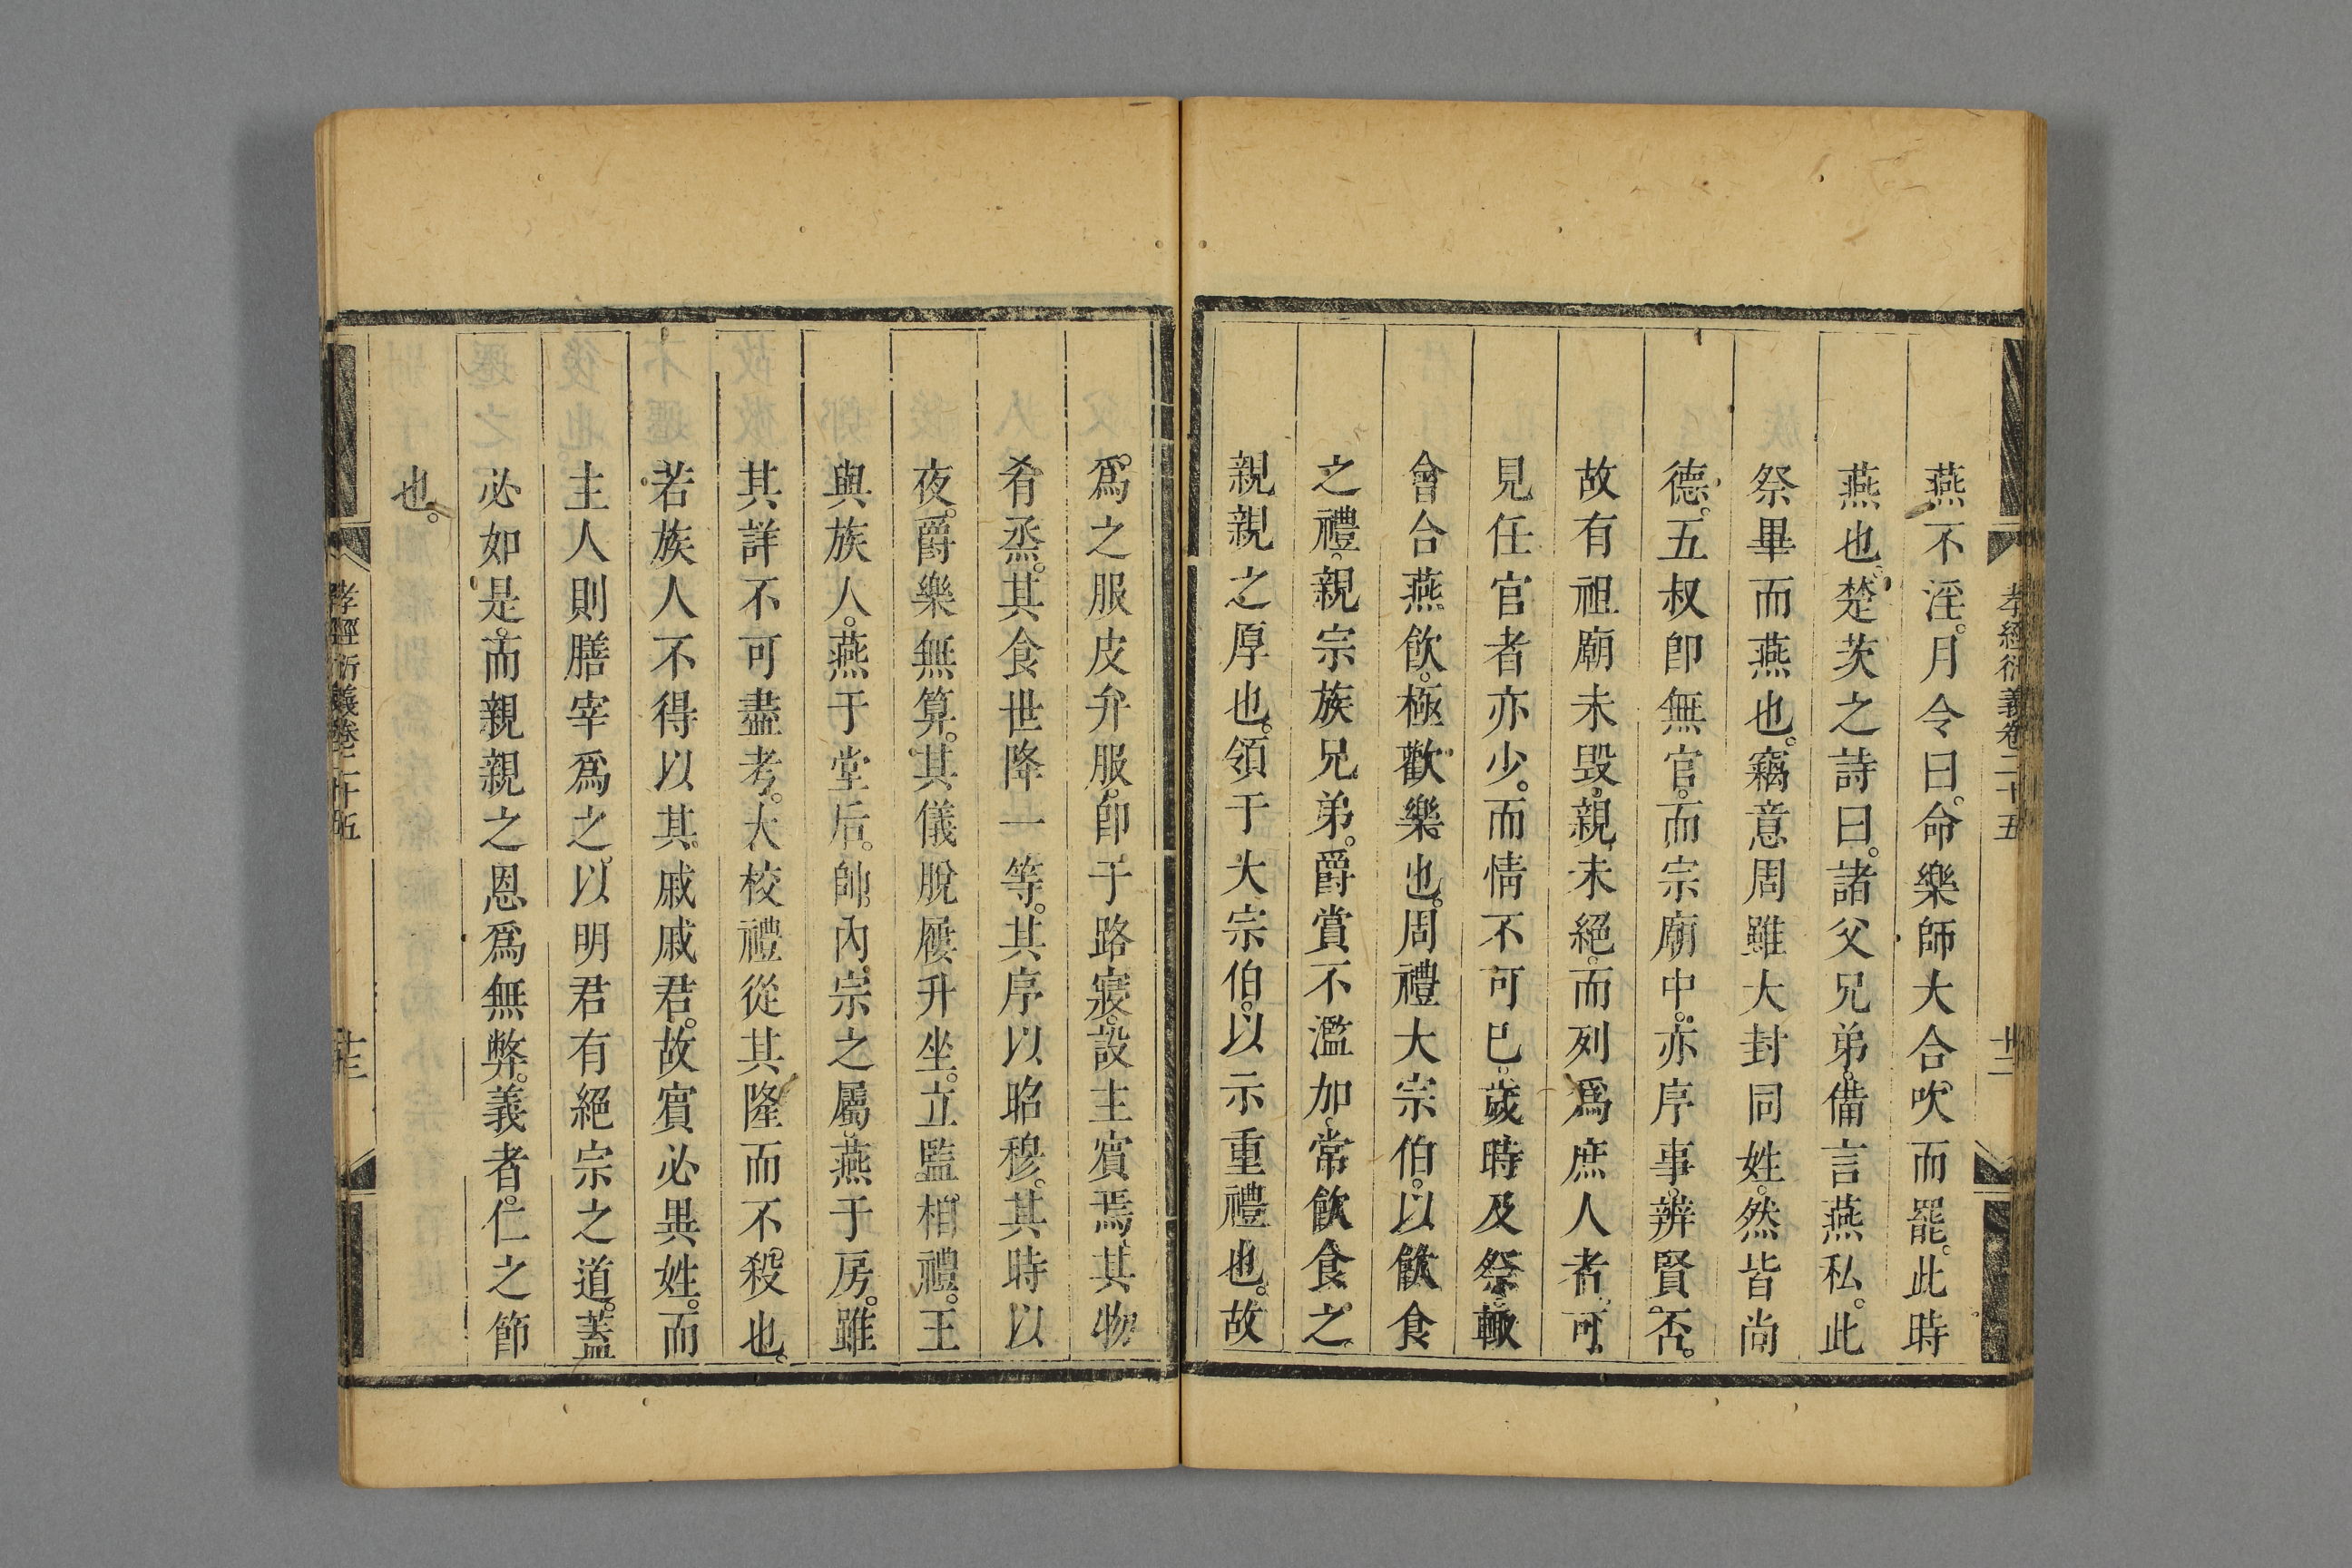 孝經衍義卷二十五
廿二
燕不淫。月令曰。命樂師大合吹而罷。此時
燕也。楚茨之詩曰。諸父兄弟。備言燕私。此
祭畢而燕也。竊意周雖大封同姓。然皆尚
德。五叔卽無官。而宗廟中。亦序事。辨賢否。
故有祖廟未毀。親未絕。而列爲庶人者。可
見任官者亦少。而情不可已。歲時及祭。輙
會合燕飲。極歡樂也。周禮大宗伯。以飲食
之禮。親宗族兄弟。爵賞不濫加。常飲食之。
親親之厚也。領于大宗伯。以示重禮也。故
爲之服皮弁服。卽于路寢。設主賓焉。其物
肴烝。其食世降一等。其序以昭穆。其時以
夜。爵樂無算。其儀脫屨升坐。立監相禮。王
與族人。燕于堂后。帥內宗之屬。燕于房。雖
其詳不可盡考。大校禮從其隆而不殺也。
若族人不得以其戚戚君。故賓必異姓。而
主人則膳宰爲之。以明君有絕宗之道。蓋
必如是。而親親之恩爲無弊。義者。仁之節
也。
孝經衍義卷二十五
廿三